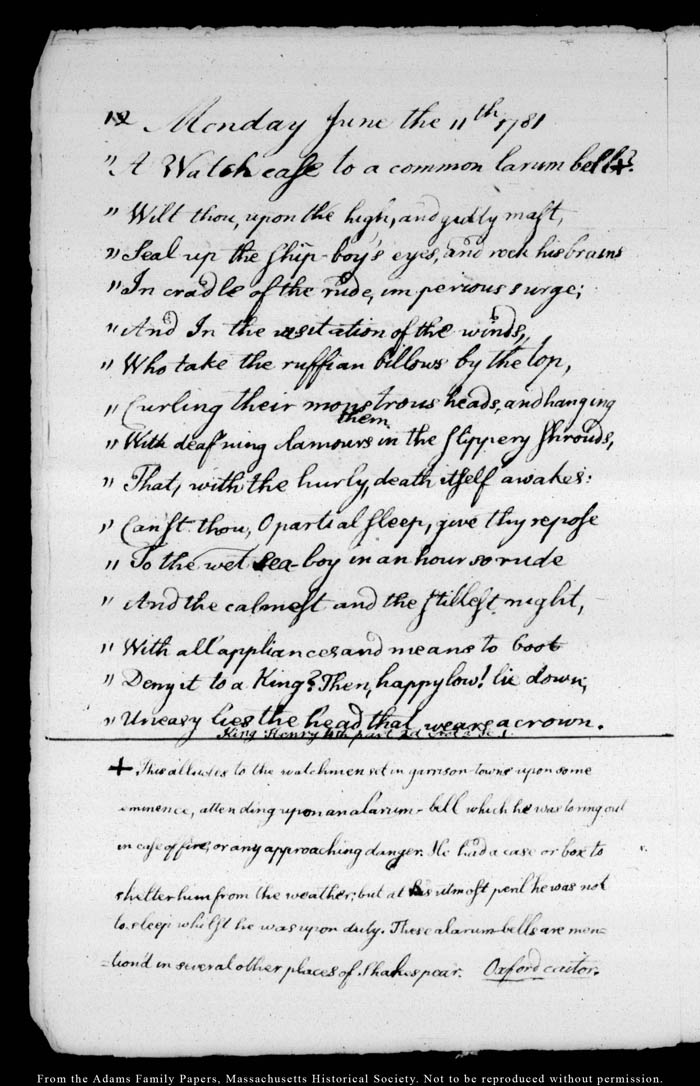 12 Monday June the 11th 1781
" A Watch case to a common larum bell +.
" Wilt thou, upon the high, and giddy mast,
" Seal up the ship-boy's eyes, and rock his brains
" In cradle of the rude, imperious surge;
" And In the visitation of the winds,
" Who take the ruffian billows by the top,
" Curling their monstrous heads, and hanging
them
" With deaf'ning clamours in the slippery shrouds,
" That, with the hurly, death itself awakes:
" Canst thou, O partial sleep, give thy repose
" To the wet Sea-boy in an hour so rude
" And the calmest and the stillest night,
" With all appliances and means to boot
" Deny it to a King? Then, happy low! lie down,
" Uneasy lies the head that wears a crown.
King Henry 4th part 2d Sc. 1
+ This alludes to the watchmen set in garrison-towns upon some
eminence, attending upon an alarum-bell which he was to ring out
in case of fire, or any approaching danger. He had a case or box to
shelter him from the weather; but at his utmost peril he was not
to sleep whilst he was upon duty. These alarum-bells are men=
=tion'd in several other places of Shakespear. Oxford editor.
From the Adams Family Papers, Massachusetts Historical Society. Not to be reproduced without permission.